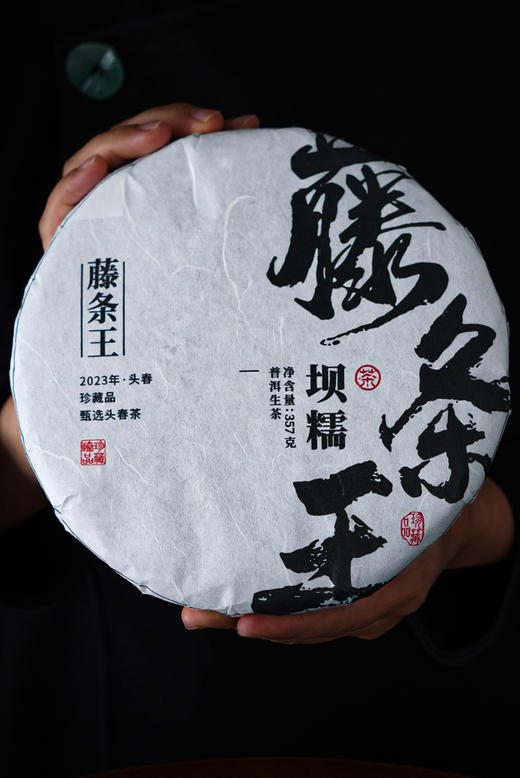 藤条王
藤条王
2023年·头春
珍藏品
甄选头春茶
坝糯
净含量:357克
普洱生茶
茶
珍藏